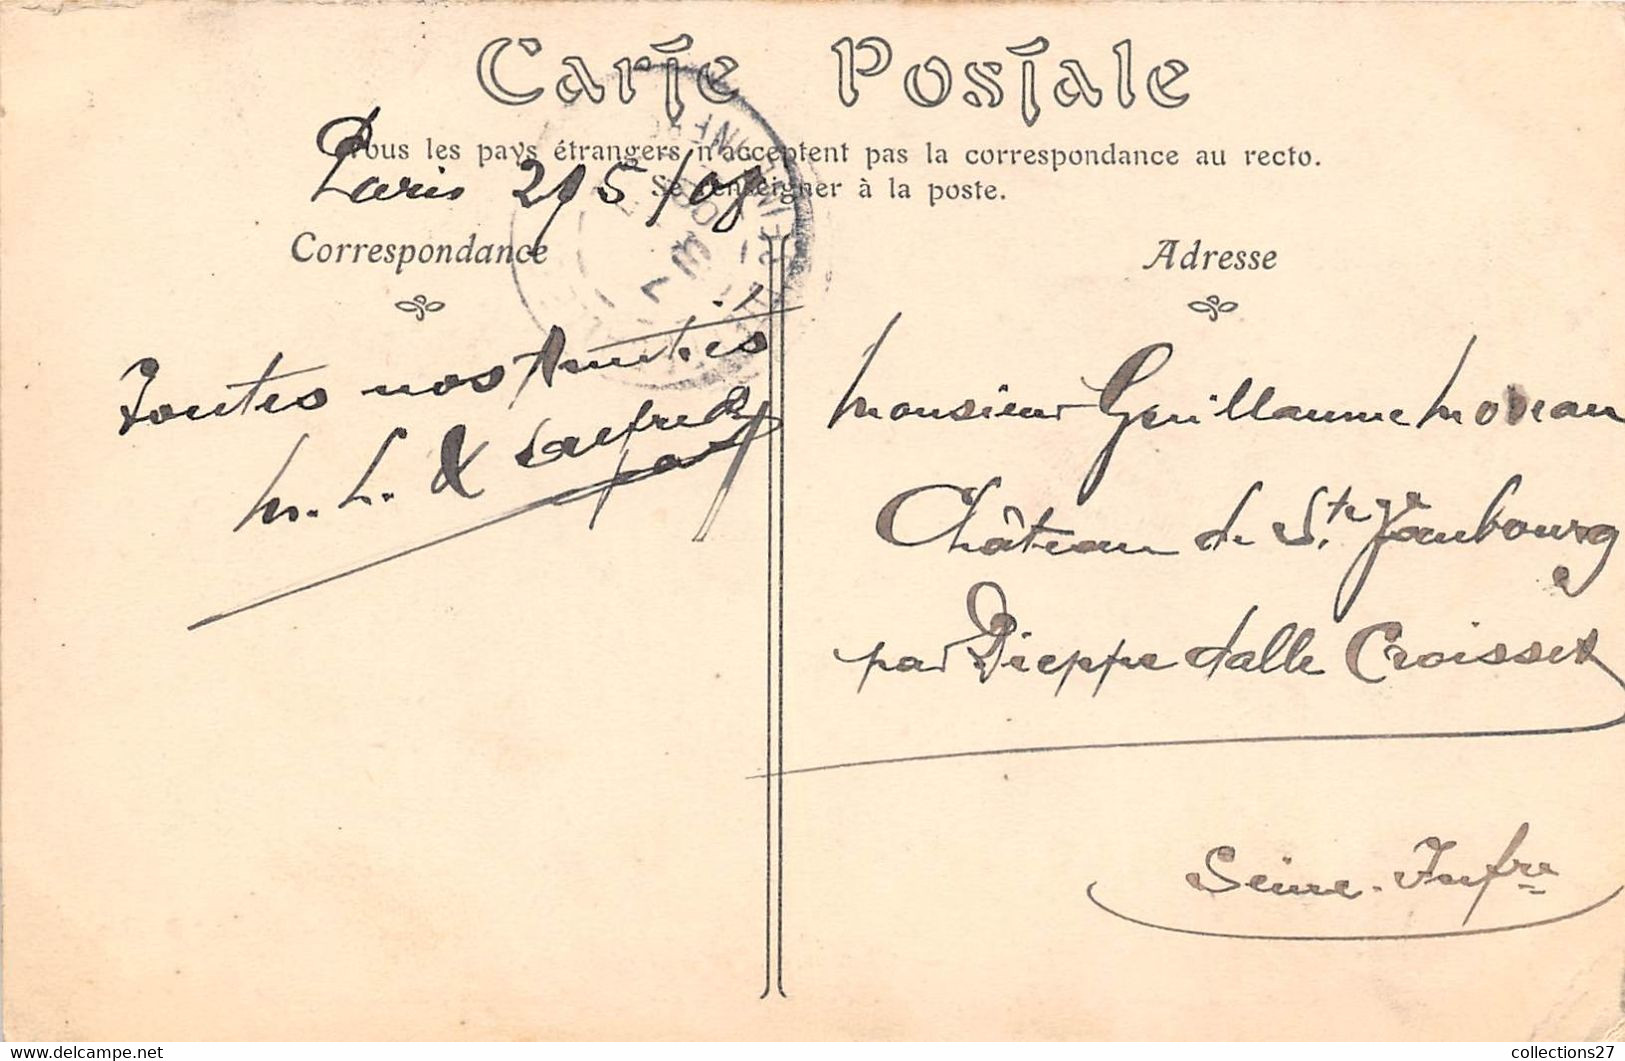 Carte Postale
Tous les pays étrangers n'acceptent pas la correspondance au recto.
Se renseigner à la poste.
Paris 2/5/08
Correspondance
Toutes nos Amitiés
M. L. & Alfred
Adresse
Monsieur Guillaume Moreau
Château de Ste Vaubourg
par Dieppe dalle Croisset
Seine-Infre
SEINE INF
collections27